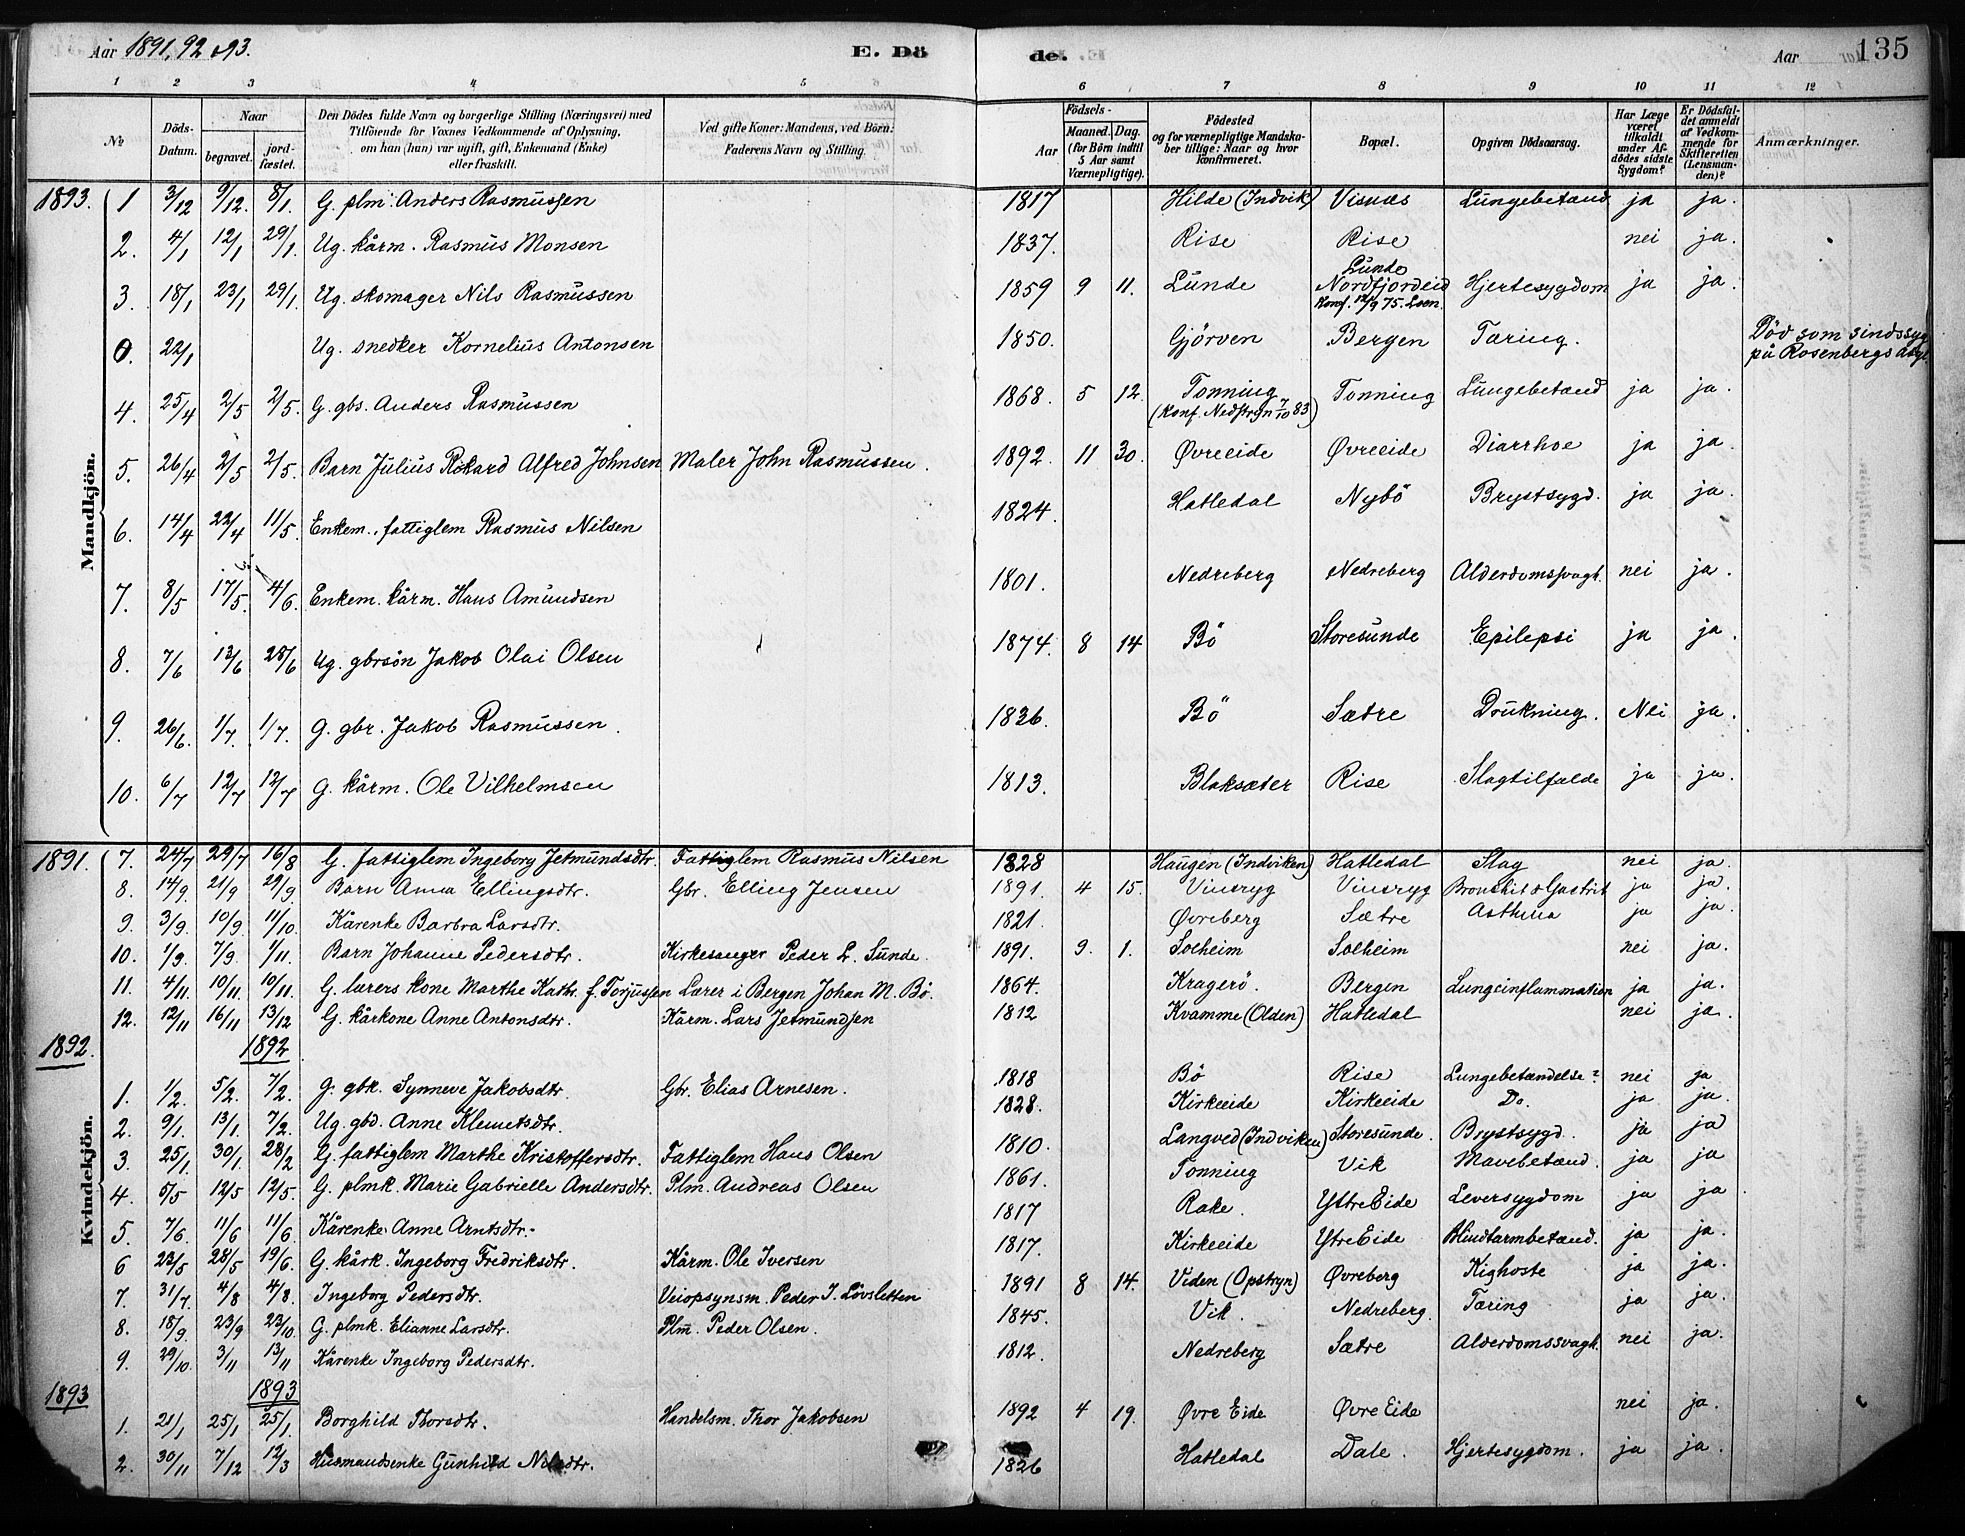 Aar 1891, 92 & 93.
E. Dö
de.
Aar
135
1 2 3 4 5 6 7 8 9 10 11 12
No
Döds-Datum.
Naar
begravet.
jord-fæstet.
Den Dödes fulde Navn og borgerlige Stilling (Næringsvei) med
Tilföiende for Voxnes Vedkommende af Oplysning,
om han (hun) var ugift, gift, Enkemand (Enke)
eller fraskilt.
Ved gifte Koner: Mandens, ved Börn:
Faderens Navn og Stilling.
Aar
Födsels-
Maaned. Dag.
(for Börn indtil
5 Aar samt
Værnepligtige).
Födested
og for værnepligtige Mandska-
ber tillige: Naar og hvor
konfirmeret.
Bopæl.
Opgiven Dödsaarsag.
Har Læge
været
tilkaldt
under Af-
dödes sidste
Sygdom?
Er Dödsfal-
det anmeldt
af Vedkom-
mende for
Skifteretten
(Lensman-
den)?
Anmærkninger.
Mandkjön.
1893. 1 3/12 9/12. 8/1. G. plm. Anders Rasmussen 1817 Hilde (Indvik) Visnæs Lungebetænd ja ja.
2. 4/1 12/1 29/1. Ug. kårm. Rasmus Monsen 1837. Rise Rise nei ja.
3 18/1 23/1 29/1. Ug. skomager Nils Rasmussen 1859 9 11. Lunde Lunde Nordfjordeid Konf. 12/9 75. Loen. Hjertesygdom ja ja.
0. 22/1 Ug. snedker Kornelius Antonsen 1850. Gjörven Bergen Tæring. Död som sindssyg på Rosenbergs Asyl
4. 25/4 2/5 2/5. G. gbs. Anders Rasmussen 1868. 5 12. Tonning (Konf. Nedstryn 7/10 83) Tonning Lungebetænd ja ja.
5. 26/4 2/5 2/5. Barn Julius Rikard Alfred Johnsen Maler John Rasmussen. 1892. 11 30. Øvreeide Øvreeide Diarrhoe ja ja.
6. 14/4 22/4 11/5. Enkem., fattiglem Rasmus Nilsen 1824. Hatledal Nybö Brystsygd. ja ja.
7. 8/5 17/5. 4/6. Enkem. kårm. Hans Amundsen 1801. Nedreberg Nedreberg Alderdomssvagh. nei ja.
8. 7/6 13/6 28/6 Ug. gbrsön Jakob Olai Olsen 1874. 8 14 Bö Storesunde Epilepsi ja ja.
9. 26/6. 1/7. 1/7. G. gbr. Jakob Rasmussen. 1836. Bö Sætre Drukning. Nei ja.
10. 6/7 12/7 12/7 G. kårm. Ole Vilhelmsen 1813. Blaksæter Rise Slagtilfælde ja ja.
Kvindekjön.
1891. 7. 24/7 29/7 16/8 G. fattiglem Ingeborg Jetmundsdtr. Fattiglem Rasmus Nilsen 1828 Haugen (Indviken) Hatledal Slag nei ja.
8. 14/9. 21/9 29/9. Barn Anna Ellingsdtr. Gbr. Elling Jensen 1891. 4 15. Vinsryg Vinsryg Bronkit & Gastrit ja ja.
9. 3/9. 10/9. 11/10. Kårenke Barbra Larsdtr. 1821. Øvreberg Sætre Asthma ja ja.
10. 1/9. 7/9. 1/11. Barn Johanne Pedersdtr. Kirkesanger Peder L. Sunde. 1891. 9. 1. Solheim Solheim nei ja.
11. 4/11. 10/11. 10/11. G. lærers kone Marthe Kathr. f. Torjussen Lærer i Bergen Johan M. Bö. 1864. Kragerö. Bergen Lungeinflammation ja ja.
12. 12/11 16/11 13/12 G. kårkone Anne Antonsdtr. Kårm. Lars Jetmundsen 1812 Kvamme (Olden) Hatledal nei ja.
1892. 1892
1. 1/2. 5/2. 7/2. G. gbk. Synneve Jakobsdtr. Gbr. Elias Arnesen. 1818 Bö Rise Lungebetændelse? nei ja
2. 9/1. 13/1. 7/2. Ug. gbd. Anne Klemetsdtr. 1828. Kirkeeide Kirkeeide Do. ja ja.
3. 25/1. 30/1. 28/2 G. fattiglem Marthe Kristoffersdtr. Fattiglem Hans Olsen 1810. Langved (Indviken) Storesunde. Brystsygd. ja ja
4. 5/5 12/5 12/5. G. plmk. Marie Gabrielle Andersdtr. Plm. Andreas Olsen 1861. Tonning Vik Mavebetænd. ja ja
5. 7/6. 11/6 11/6. Kårenke Anne Arntsdtr. 1817 Rake. Ytre Eide Leversygdom ja ja
6 23/5 28/5 19/6. G. kårk. Ingeborg Fredriksdtr. Kårm. Ole Iversen 1817. Kirkeeide Ytre Eide Blindtarmbetænd. ja ja.
7. 31/7. 4/8 4/8. Ingeborg Pedersdtr. Veiopsynsm. Peder I. Lövsletten 1891 8 14. Viden (Opstryn) Øvreberg Kighoste ja ja.
8. 18/9. 23/9 23/10. G. plmk. Elianne Larsdtr. Plm. Peder Olsen. 1845. Vik. Nedreberg. Tæring ja ja.
9. 29/10. 3/11 13/11 Kårenke Ingeborg Pedersdtr. 1812. Nedreberg Sætre Alderdomssvagh. nei ja.
1893 1893
1. 21/1 25/1 25/1. Borghild Thorsdtr. Handelsm. Thor Jakobsen 1892 4 19. Øvre Eide Øvre Eide nei ja.
2. 30/11 7/12 12/3 Husmandsenke Gunhild Nilsdtr. 1826 Hatledal Dale. Hjertesygdom. ja ja.